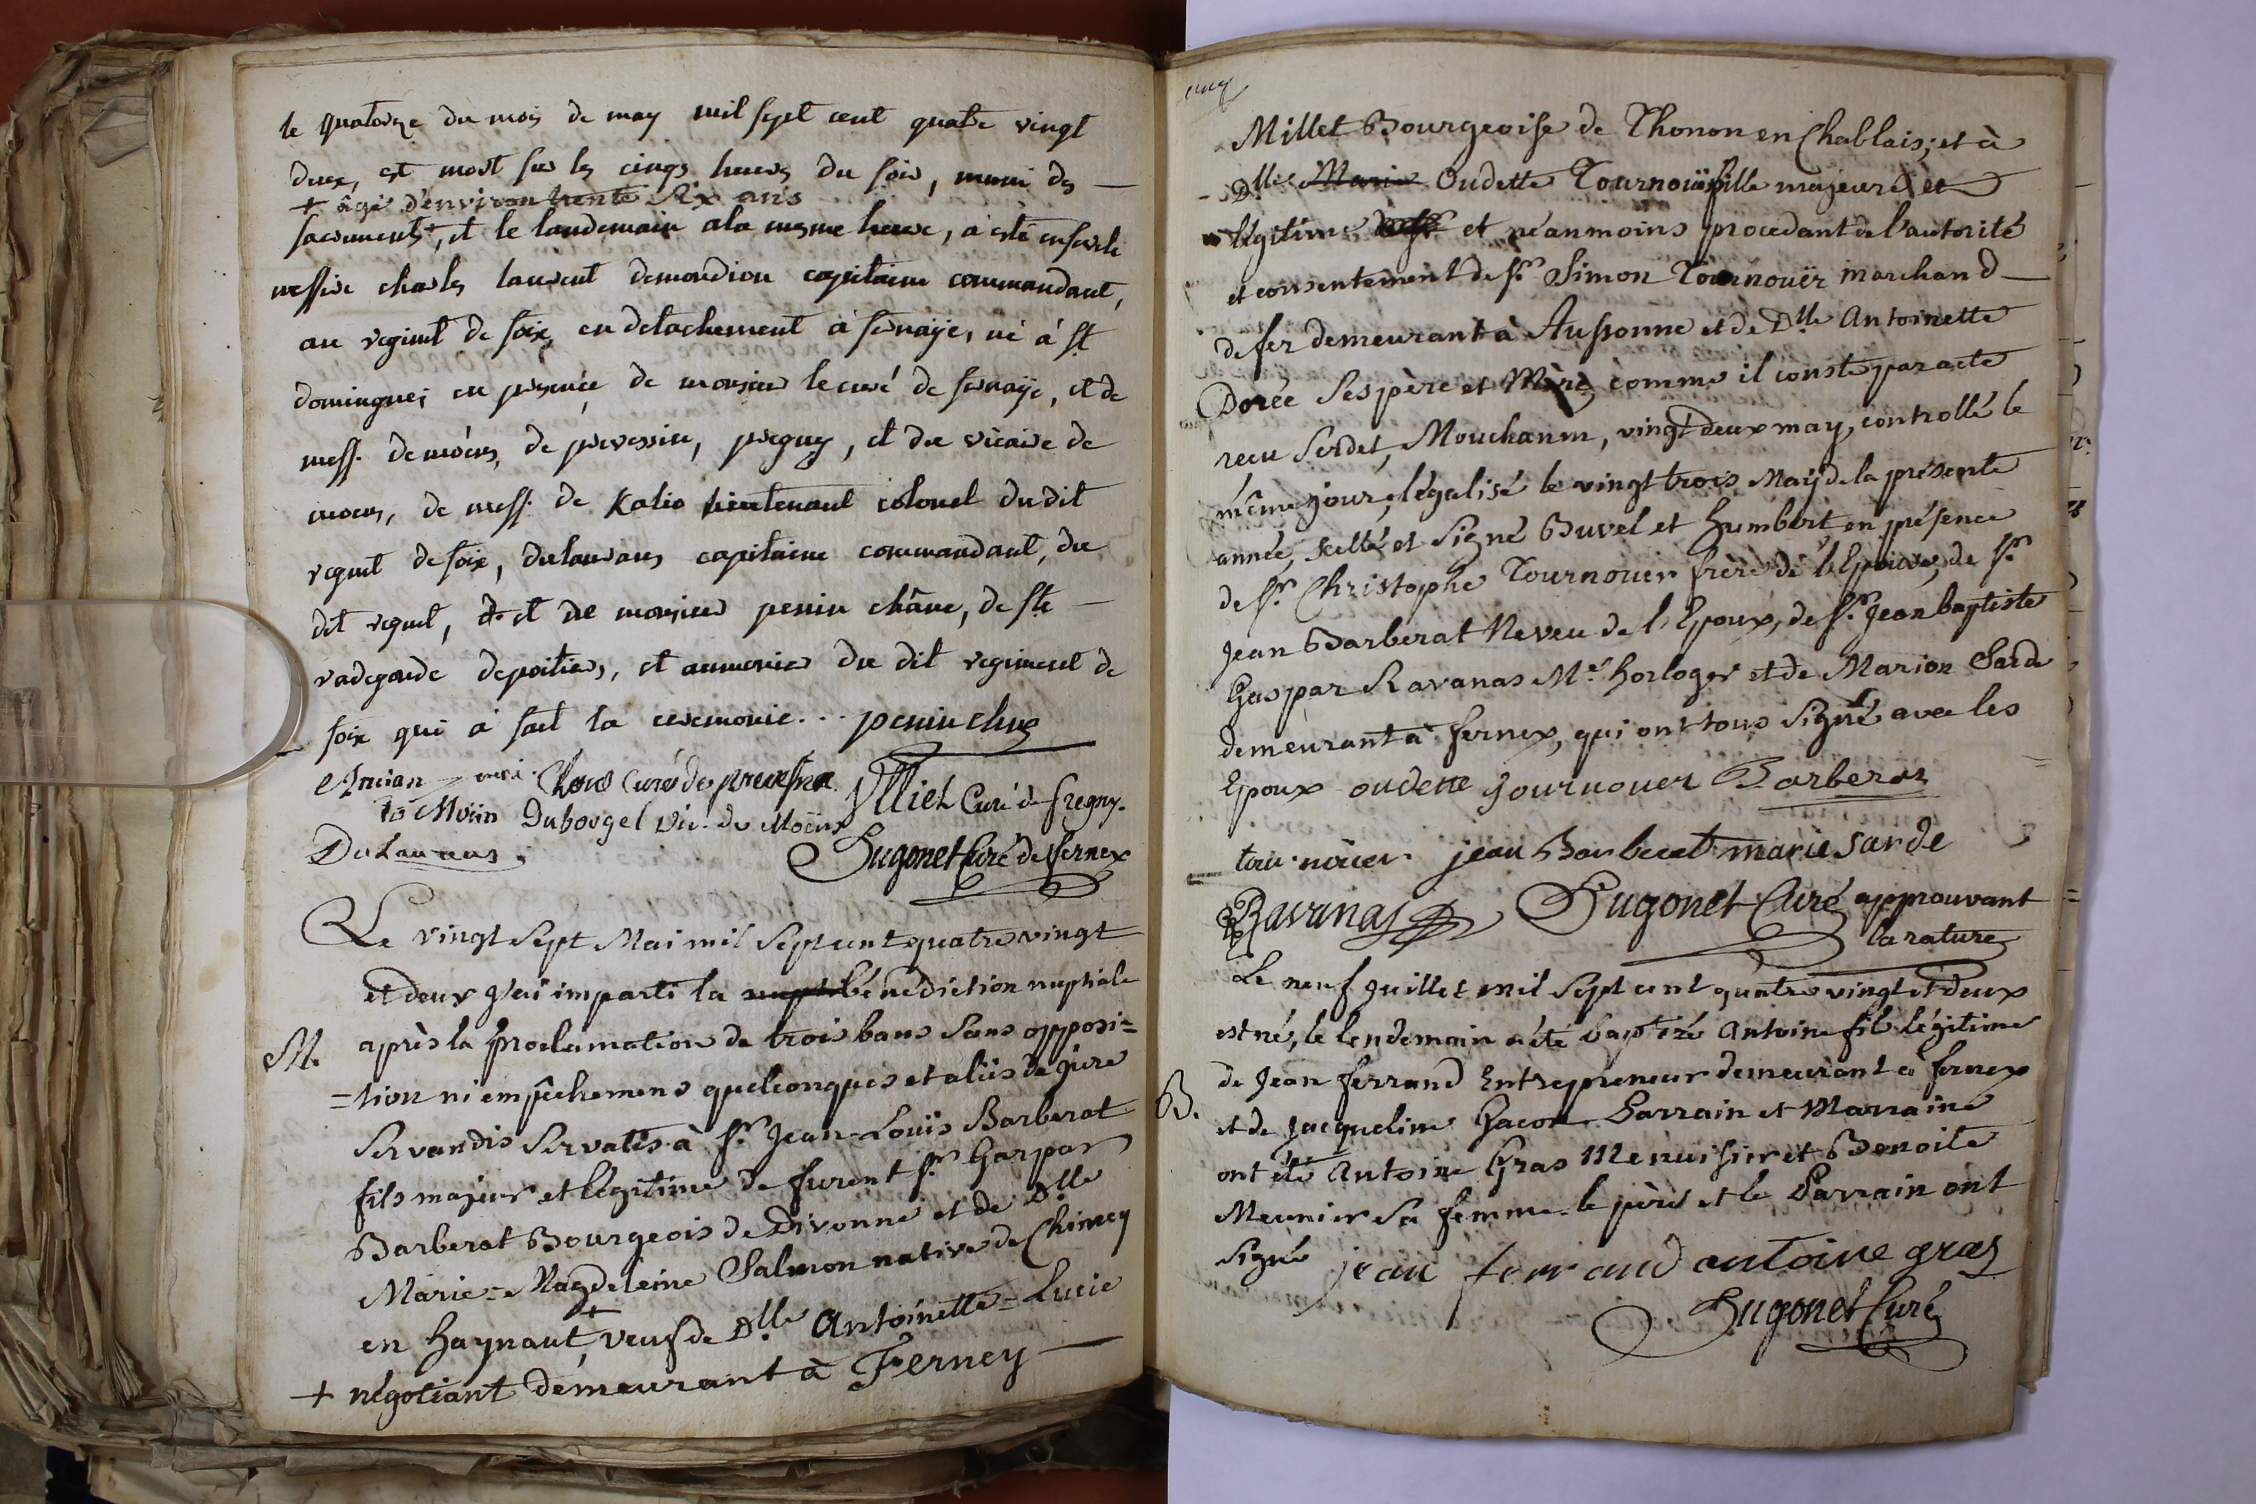 le quatorze du mois de may mil sept cent quatre vingt
deux, est mort sur les cinqs heures du soir, muni des
+ âgé d'environ trente six ans
sacrements+, et le landemain a la mesme heure, a esté enseveli
messire charles laurent demondion capitaine commandant,
au regimt de foix, en detachement à fernaÿe, né à st
domingue; en presence de monsieur le curé de fernaÿe, et de
mess. de moëns, de prevessin, pregny, et du vicaire de
moens, de mess. de Kalio lieutenant colonel du dit
regimt de foix, dulaurans capitaine commandant, du
dit regmt, et de monsieur penin châne, de ste
radegonde de poitiers, et aumonier du dit regiment de
foix qui a fait la ceremonie... penin chne
Ancian curé Chous curé de prevessin Vlliet Curé de Pregny.
de Moïin Dubouget vic. de Moëns
DuLaurans. Hugonet Curé de fernex
Le vingt sept Mai mil sept cent quatre vingt
et deux j'ai imparti la bénédiction nuptiale
M. après la proclamation de trois bans sans opposi=
=tion ni empêchemens quelconques et aliis de jure
servandis servatis à Sr. Jean-Louïs Barberat
fils majeur et légitime de furent Sr. Gaspar
Barberat Bourgeois de Divonne et de Dlle
Marie=Magdeleine Salmon native de Chimey
en haynaut,+ veuf de Dlle Antoinette=Lucie
+ négotiant demeurant à Ferney
Millet Bourgeoise de Thonon en Chablais; et à
Dlle Marie Oudette Tournouër fille majeure et
légitime et néanmoins procedant de l'autorité
et consentement de Sr. Simon Tournouër marchand
de fer demeurant à Aussonne et de Dlle Antoinette
Dorée ses père et Mère, comme il conste par acte
recu Serdet, Mouchanin, vingt deux may, controllé le
même jour, légalisé le vingt trois Maÿ de la présente
année, scellé et signé Buvel et humbert, en présence
de Sr. Christophe Tournouer frère de l'Epouse, de Sr
Jean Barberat Neveu de l'Epoux, de Sr. Jean baptiste
Gaspar Ravanas Me. horloger et de Marion Sarde
demeurant à fernex, qui ont tous signé avec les
Epoux oudette tournouer Barberat
tournouer jean Barberat marie sarde
Ravanas Hugonet Curé approuvant
la rature
Le neuf juillet mil sept cent quatre vingt et deux
est né, le lendemain a été baptizé Antoine fils légitime
de Jean ferrand Entrepreneur demeurant à fernex
B. et de Jacqueline Gacon Parrain et Marraine
ont été Antoine Gras Menuisier et Benoite
Meunier sa femme. le père et le Parrain ont
signé jean ferrand antoine gras
Hugonet Curé